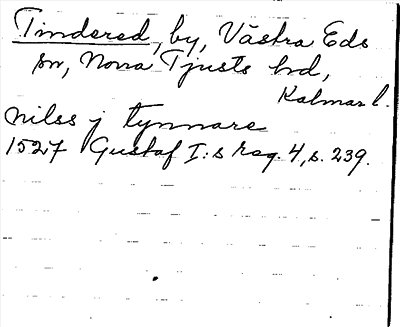 Tindered, by, Västra Eds
sn, Norra Tjusts hd,
Kalmar l.
nilss j tynnare
1527 Gustaf I:s reg. 4, s. 239.